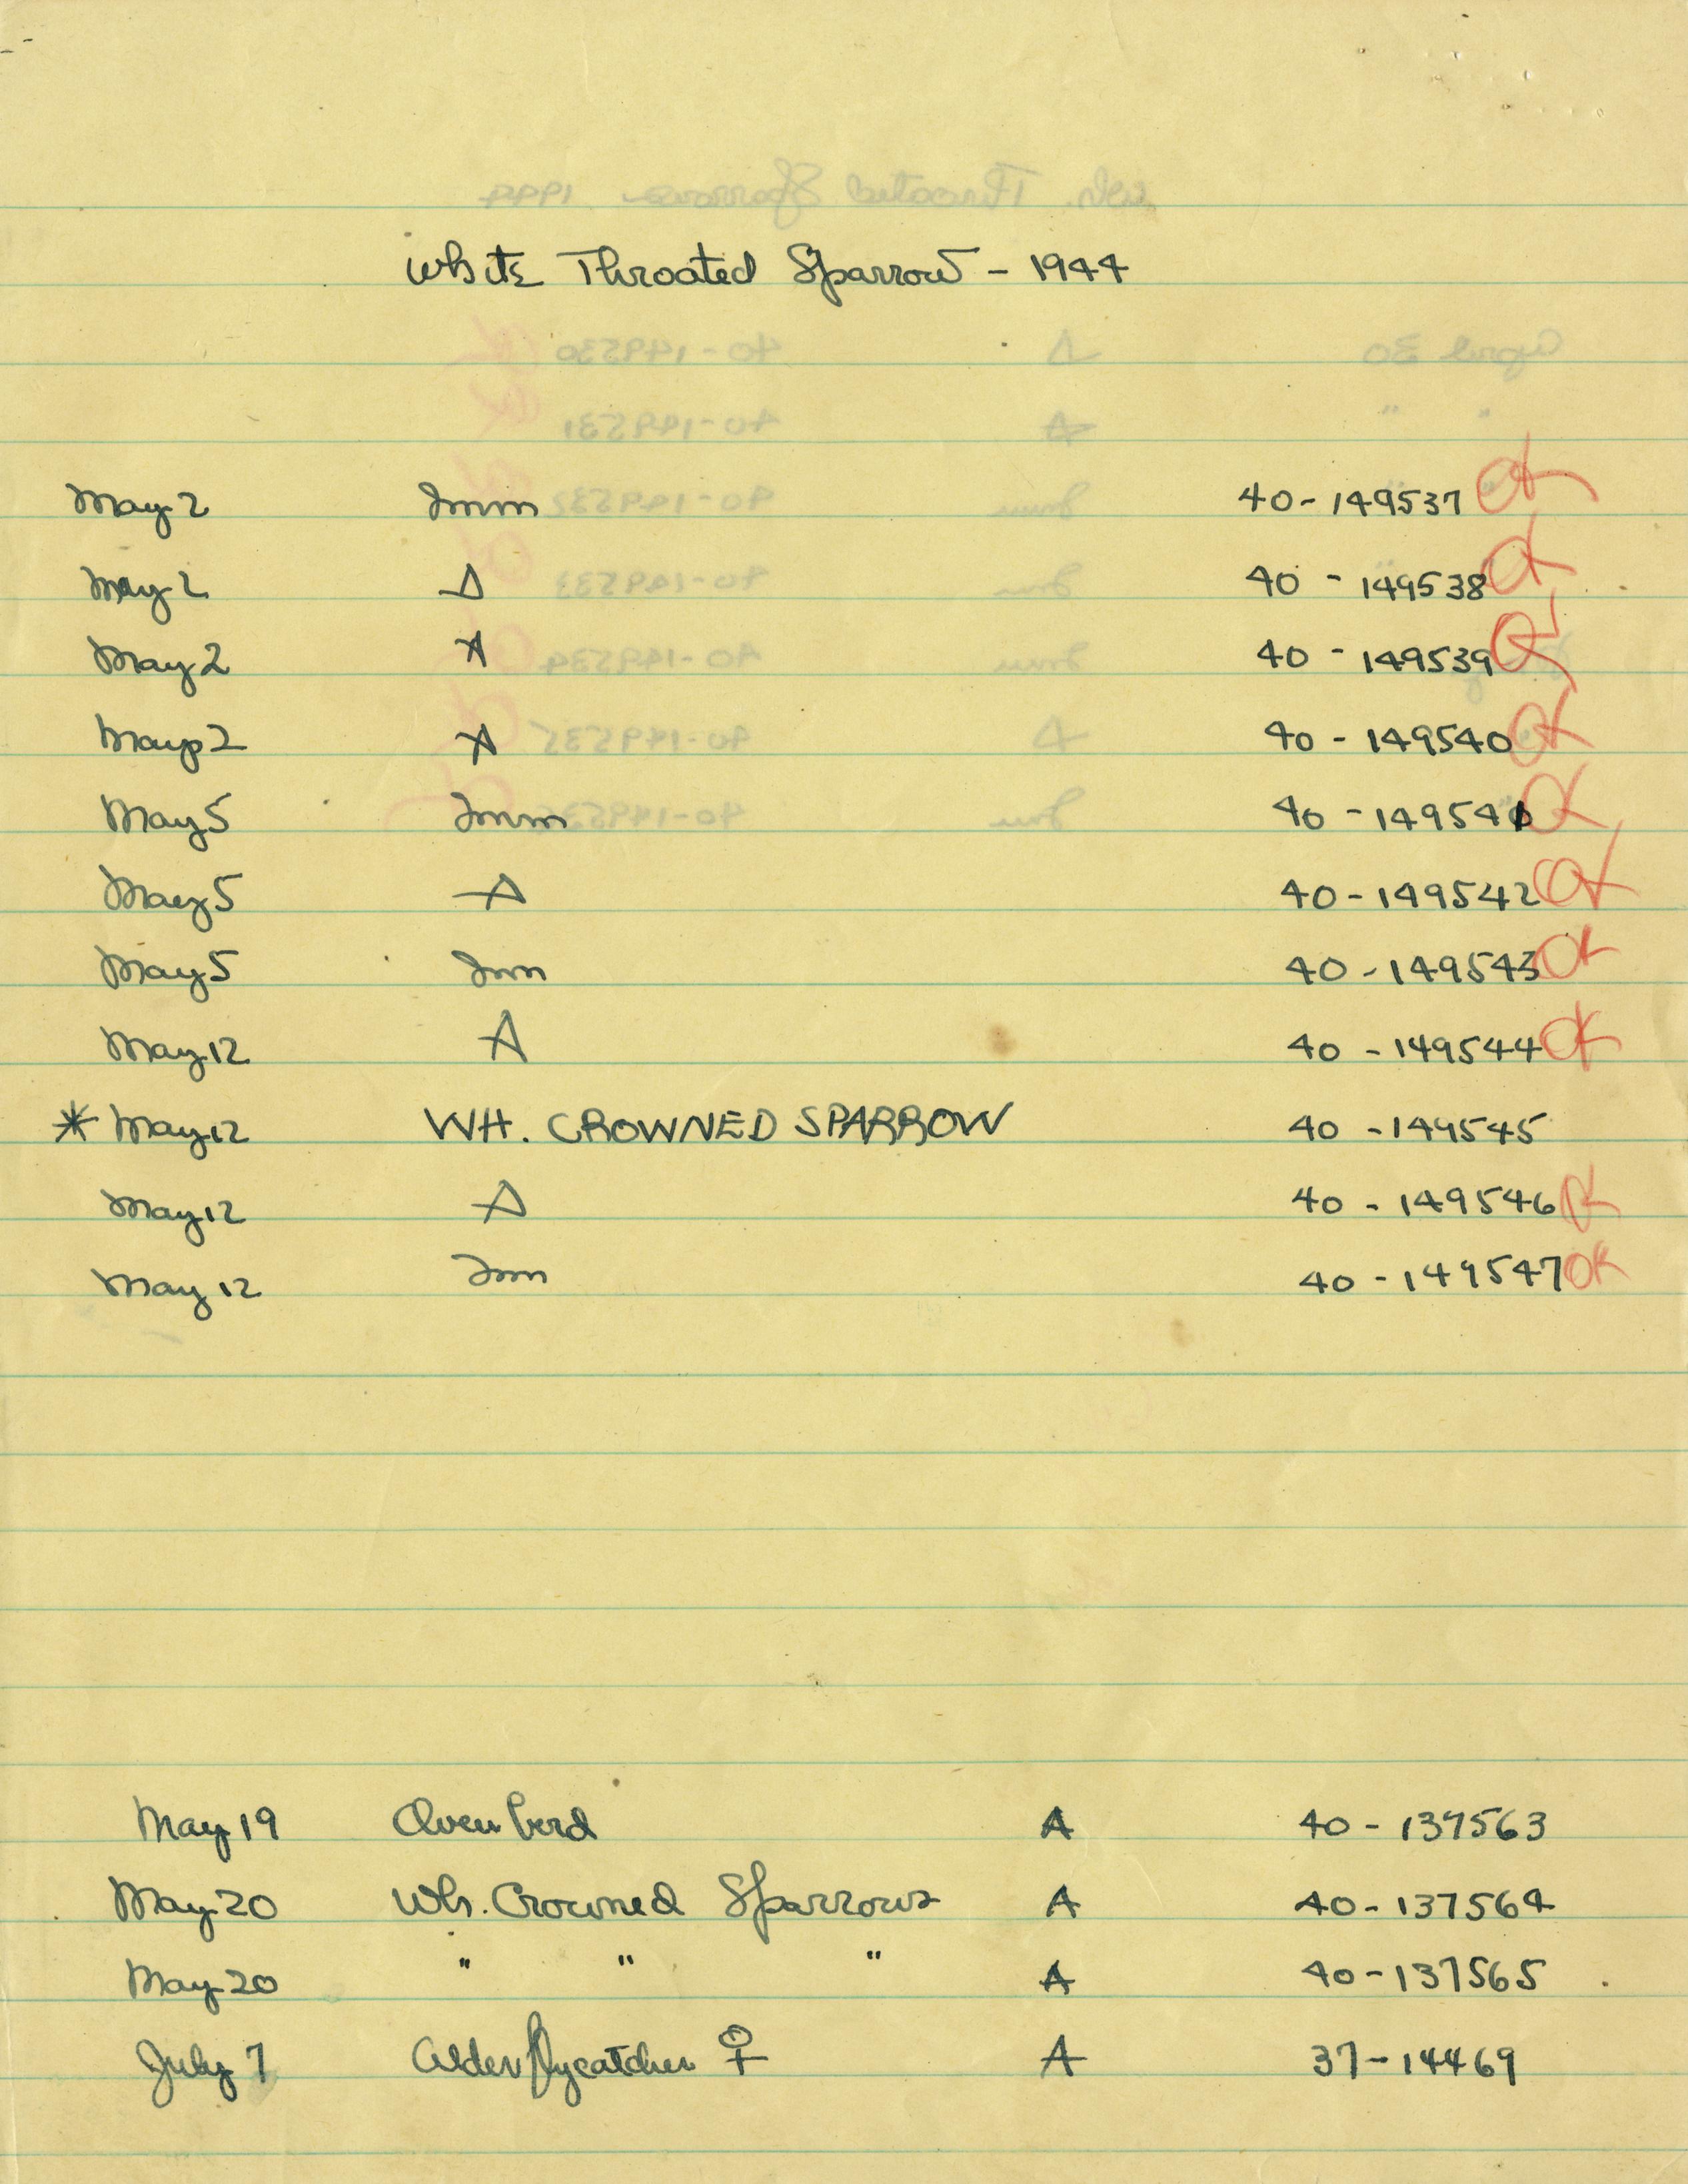 White Throated Sparrow - 1944
May 2 Imm 40-149537 OK
May 2 A 40-149538 OK
May 2 A 40-149539 OK
May 2 A 40-149540 OK
May 5 Imm 40-149541 OK
May 5 A 40-149542 OK
May 5 Imm 40-149543 OK
May 12 A 40-149544 OK
* May 12 WH. CROWNED SPARROW 40-149545
May 12 A 40-149546 OK
May 12 Imm 40-149547 OK
May 19 Oven bird A 40-137563
May 20 Wh. Crowned Sparrows A 40-137564
May 20 " " " A 40-137565
July 7 Alder flycatcher ♀ A 37-14469